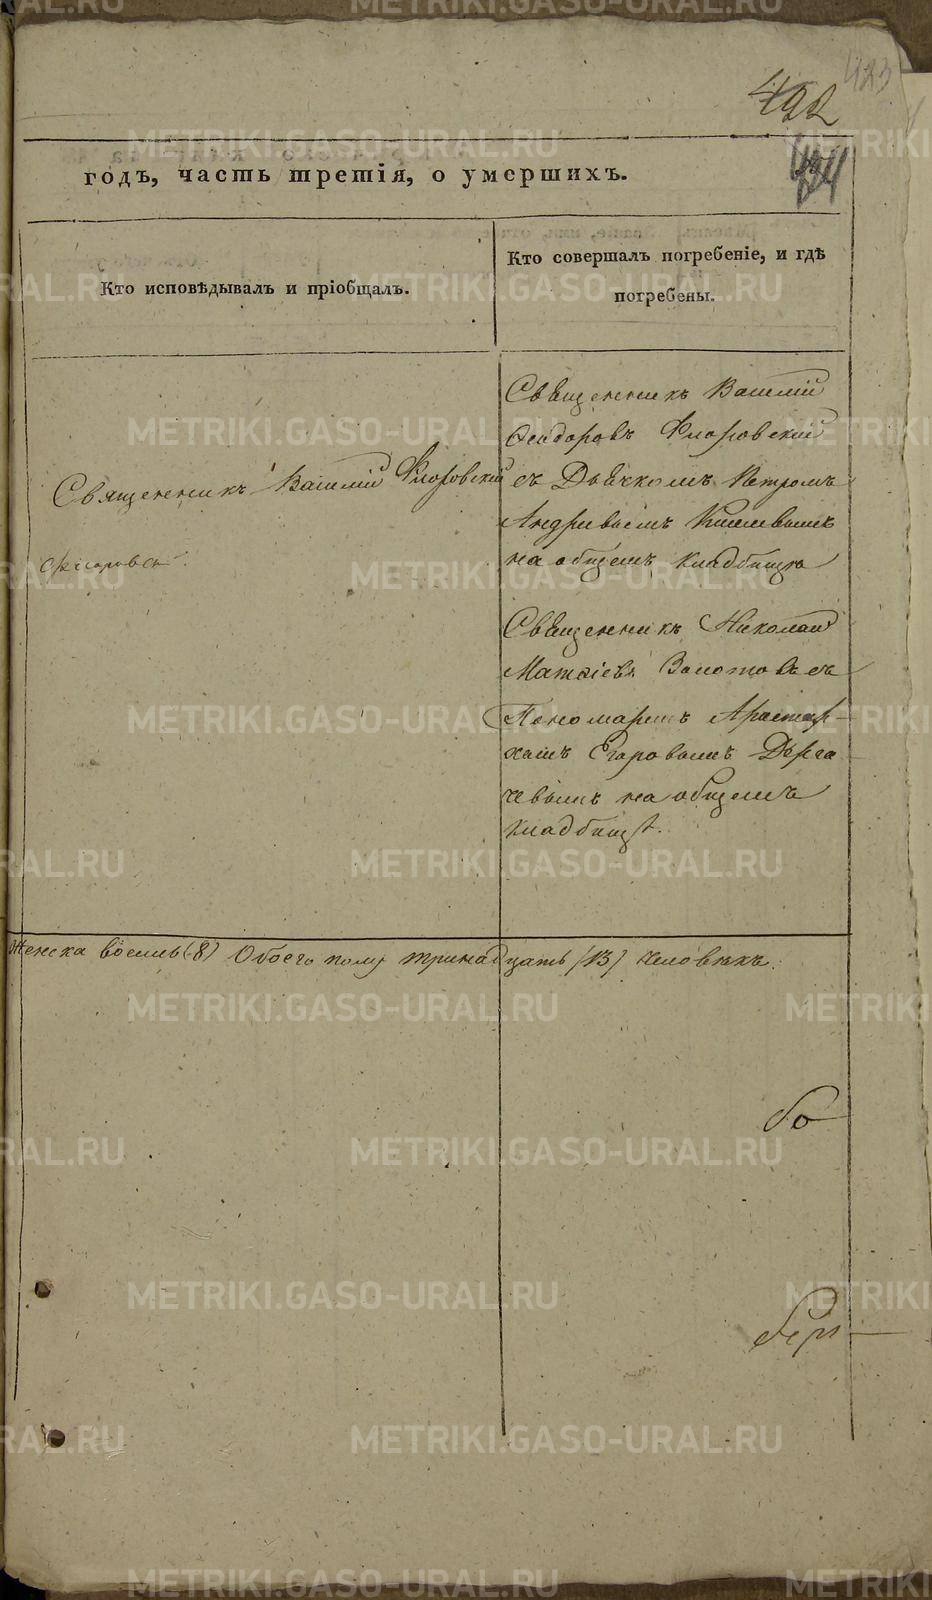 483
492
годъ, часть третія, о умершихъ.
Кто исповѣдывалъ и пріобщалъ.
Кто совершалъ погребеніе, и гдѣ
погребены.
Священникъ Василій Флоровскій
Священникъ Василій
Феодоровъ Флоровскій
съ Дьячкомъ Петромъ
Андрѣвымъ
на общемъ кладбищѣ
Священникъ Николай
Матѳіевъ Золотовъ съ
Пономаремъ Аристар-
хомъ Егоровымъ Дерга
чвымъ на общемъ
кладбищѣ.
Женска восемь (8) Обоего полу тринадцать (13) человѣкъ.
METRIKI.GASO-URAL.RU